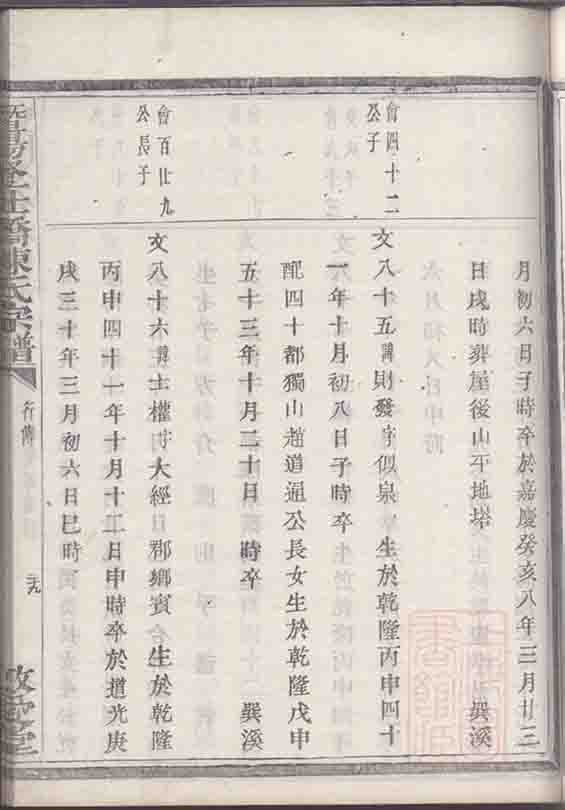 月初六日子時卒於嘉慶癸亥八年三月廿三
日戌時葬屋後山平地塔 巽溪
會四十二
公子
文八十五諱財發字似泉生於乾隆丙申四十
一年十月初八日子時卒
配四十都獨山趙道逼公長女生於乾隆戊申
五十三年十月二十日 時卒 巽溪
會百廿九
公長子
文八十六諱士權字大經日郡鄉賓生於乾隆
丙申四十一年十月十二日申時卒於道光庚
戌三十年三月初六日巳時
橋陳氏宗譜
行傳
堂